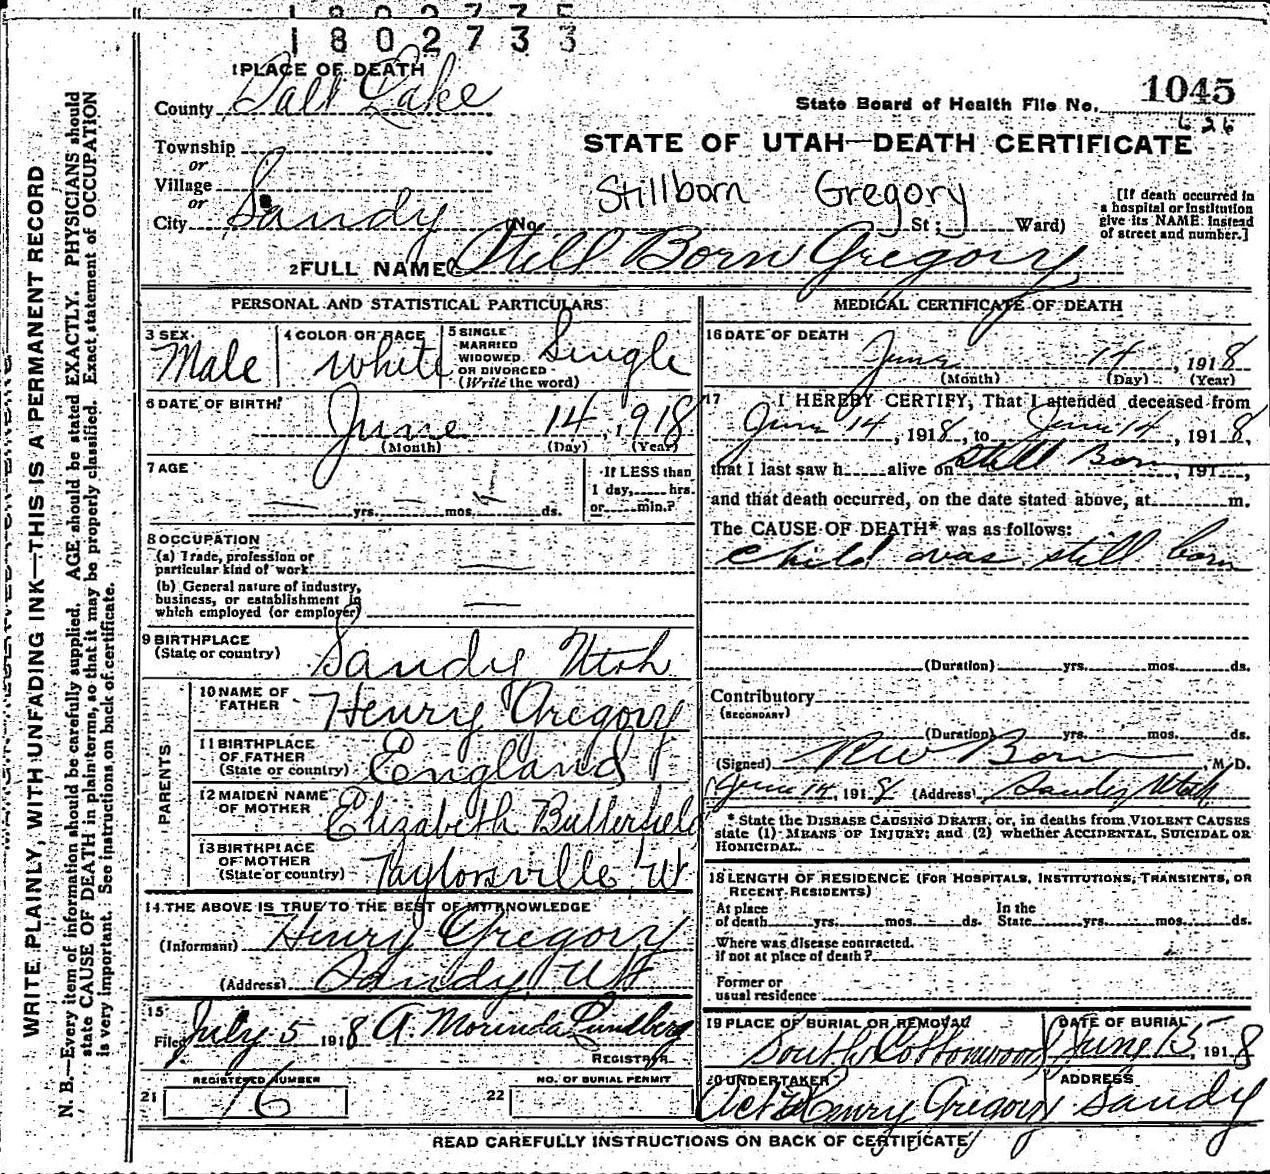 1802735
1802733
1 PLACE OF DEATH
County Salt Lake
State Board of Health File No. 1045
626
STATE OF UTAH—DEATH CERTIFICATE
Township
or
Village
or
City Sandy (No. St.; Ward)
Stillborn Gregory
[If death occurred in
a hospital or institution
give its NAME instead
of street and number.]
2 FULL NAME Still Born Gregory
PERSONAL AND STATISTICAL PARTICULARS
3 SEX Male
4 COLOR OR RACE White
5 SINGLE
MARRIED
WIDOWED
OR DIVORCED
(Write the word)
Single
6 DATE OF BIRTH
June 14, 1918
(Month) (Day) (Year)
7 AGE
yrs. mos. ds.
If LESS than
1 day, hrs.
or min.?
8 OCCUPATION
(a) Trade, profession or
particular kind of work
(b) General nature of industry,
business, or establishment in
which employed (or employer)
9 BIRTHPLACE
(State or country)
Sandy Utah
PARENTS
10 NAME OF
FATHER
Henry Gregory
11 BIRTHPLACE
OF FATHER
(State or country)
England
12 MAIDEN NAME
OF MOTHER
Elizabeth Butterfield
13 BIRTHPLACE
OF MOTHER
(State or country)
Taylorsville Ut
14 THE ABOVE IS TRUE TO THE BEST OF MY KNOWLEDGE
(Informant) Henry Gregory
(Address) Sandy, Ut
15
Filed July 5 1918 A. Morinda Lundberg
REGISTRAR
REGISTERED NUMBER
21 16
NO. OF BURIAL PERMIT
22
MEDICAL CERTIFICATE OF DEATH
16 DATE OF DEATH
June 14, 1918
(Month) (Day) (Year)
17 I HEREBY CERTIFY, That I attended deceased from
June 14, 1918, to June 14, 1918,
that I last saw h alive on Still Born, 191 ,
and that death occurred, on the date stated above, at m.
The CAUSE OF DEATH* was as follows:
Child was still born
(Duration) yrs. mos. ds.
Contributory
(SECONDARY)
(Duration) yrs. mos. ds.
(Signed) , M.D.
June 14, 1918 (Address) Sandy Utah
* State the DISEASE CAUSING DEATH, or, in deaths from VIOLENT CAUSES
state (1) MEANS OF INJURY; and (2) whether ACCIDENTAL, SUICIDAL OR
HOMICIDAL.
18 LENGTH OF RESIDENCE (FOR HOSPITALS, INSTITUTIONS, TRANSIENTS, OR
RECENT RESIDENTS)
At place
of death yrs. mos. ds.
In the
State yrs. mos. ds.
Where was disease contracted.
if not at place of death?
Former or
usual residence
19 PLACE OF BURIAL OR REMOVAL
South Cottonwood
DATE OF BURIAL
June 15, 1918
20 UNDERTAKER
Henry Gregory
ADDRESS
Sandy
READ CAREFULLY INSTRUCTIONS ON BACK OF CERTIFICATE
WRITE PLAINLY, WITH UNFADING INK—THIS IS A PERMANENT RECORD
N. B.—Every item of information should be carefully supplied. AGE should be stated EXACTLY. PHYSICIANS should
state CAUSE OF DEATH in plain terms, so that it may be properly classified. Exact statement of OCCUPATION
is very important. See instructions on back of certificate.